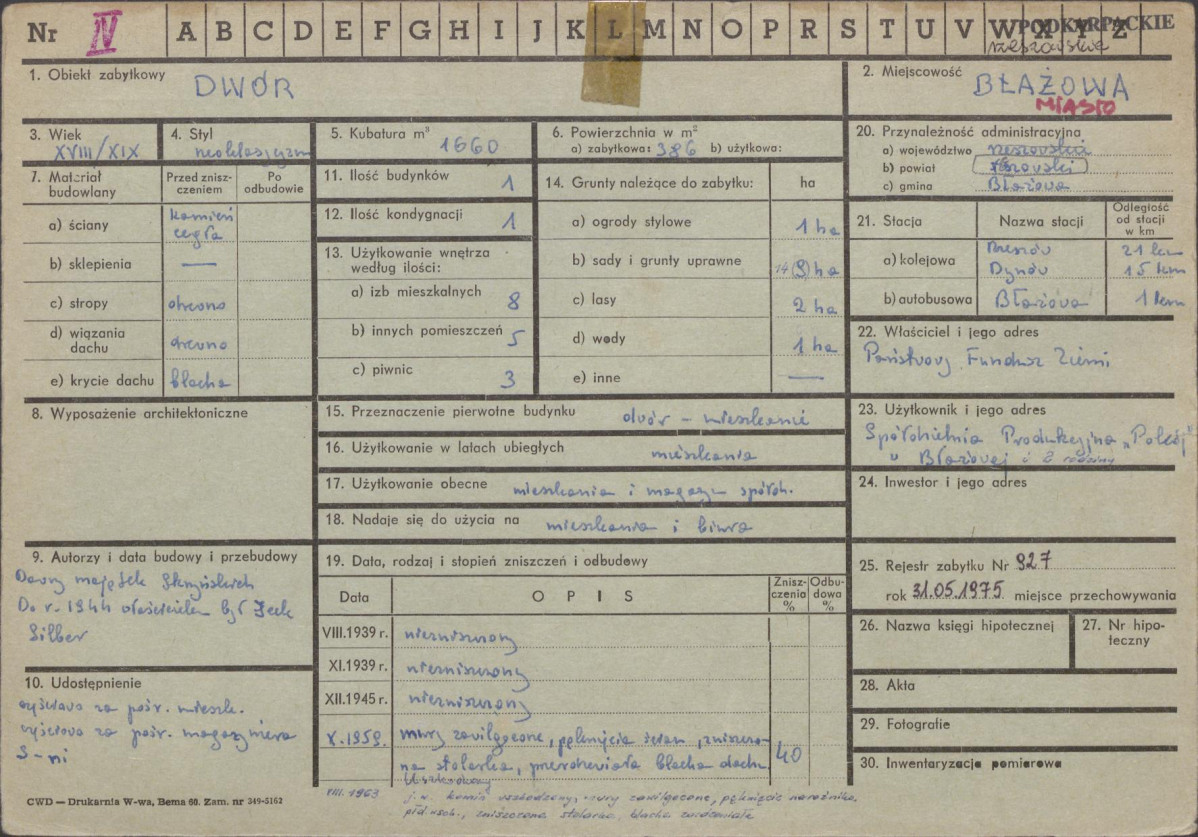 Nr IV A B C D E F G H I J K L M N O P R S T U V W X Y Z PODKARPACKIE
rzeszowskie
1. Obiekt zabytkowy DWÓR
2. Miejscowość BŁAŻOWA
MIASTO
3. Wiek XVIII/XIX
4. Styl neoklasycyzm
5. Kubatura m³ 1660
6. Powierzchnia w m²
a) zabytkowa: 386 b) użytkowa:
20. Przynależność administracyjna
a) województwo rzeszowski
b) powiat rzeszowski
c) gmina Błażowa
7. Materiał budowlany
Przed zniszczeniem
Po odbudowie
a) ściany kamień
cegła
b) sklepienia —
c) stropy drewno
d) wiązania dachu drewno
e) krycie dachu blacha
11. Ilość budynków 1
12. Ilość kondygnacji 1
13. Użytkowanie wnętrza
według ilości:
a) izb mieszkalnych 8
b) innych pomieszczeń 5
c) piwnic 3
14. Grunty należące do zabytku: ha
a) ogrody stylowe 1 ha
b) sady i grunty uprawne 14 (9) ha
c) lasy 2 ha
d) wody 1 ha
e) inne —
21. Stacja Nazwa stacji Odległość od stacji w km
a) kolejowa Rzeszów 21 km
Dynów 15 km
b) autobusowa Błażowa 1 km
22. Właściciel i jego adres
Państwowy Fundusz Ziemi
8. Wyposażenie architektoniczne
15. Przeznaczenie pierwotne budynku dwór – mieszkanie
16. Użytkowanie w latach ubiegłych mieszkania
17. Użytkowanie obecne mieszkania i magazyn spółdz.
18. Nadaje się do użycia na mieszkania i biura
23. Użytkownik i jego adres
Spółdzielnia Produkcyjna „Postęp”
w Błażowej i 2 rodziny
24. Inwestor i jego adres
9. Autorzy i data budowy i przebudowy
Dawny majątek Skrzyńskich
Do r. 1944 właścicielem był
Silber
10. Udostępnienie
wyściowo za pośr. mieszk.
wyściowo za pośr. magazyniera
S-ni
19. Data, rodzaj i stopień zniszczeń i odbudowy
Data OPIS Zniszczenia % Odbudowa %
VIII.1939 r. niezniszczony
XI.1939 r. niezniszczony
XII.1945 r. niezniszczony
X.1959. mury zawilgocone, pęknięcia ścian, zniszczo-
na stolarka, przerdzewiała blacha dachu 40
Uszkodzony
VIII.1963 j.w. komin uszkodzony, mury zawilgocone, pęknięcie narożnika
płd.wsch., zniszczona stolarka, blacha zardzewiała
25. Rejestr zabytku Nr 927
rok 31.05.1975 miejsce przechowywania
26. Nazwa księgi hipotecznej
27. Nr hipoteczny
28. Akta
29. Fotografie
30. Inwentaryzacja pomiarowa
CWD — Drukarnia W-wa, Bema 60. Zam. nr 349-5162